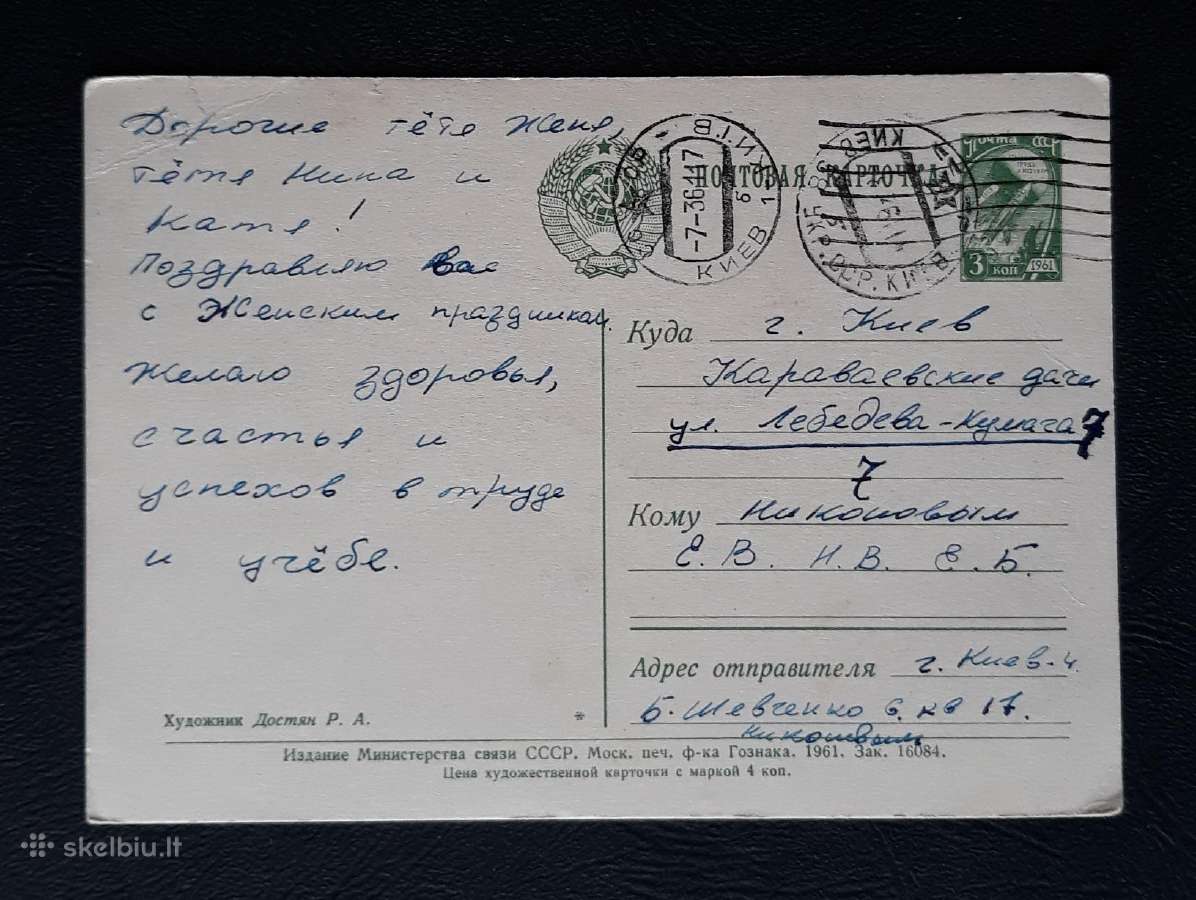 Дорогие тётя Женя,
тётя Нина и
Катя!
Поздравляю Вас
с Женским праздником.
Желаю здоровья,
счастья и
успехов в труде
и учёбе.
Художник Достян Р. А.
*
ПОЧТОВАЯ КАРТОЧКА
КИЇВ
-7-36117
КИЕВ
КИЕВ
ПОЧТА СССР
3 КОП
1961
Куда г. Киев
Караваевские дачи
ул. Лебедева-Кумача 7
7
Кому Никоновым
Е. В. Н. В. Е. Б.
Адрес отправителя г. Киев-4
Б. Шевченко 6. кв 17.
Никоновым
Издание Министерства связи СССР. Моск. печ. ф-ка Гознака. 1961. Зак. 16084.
Цена художественной карточки с маркой 4 коп.
skelbiu.lt